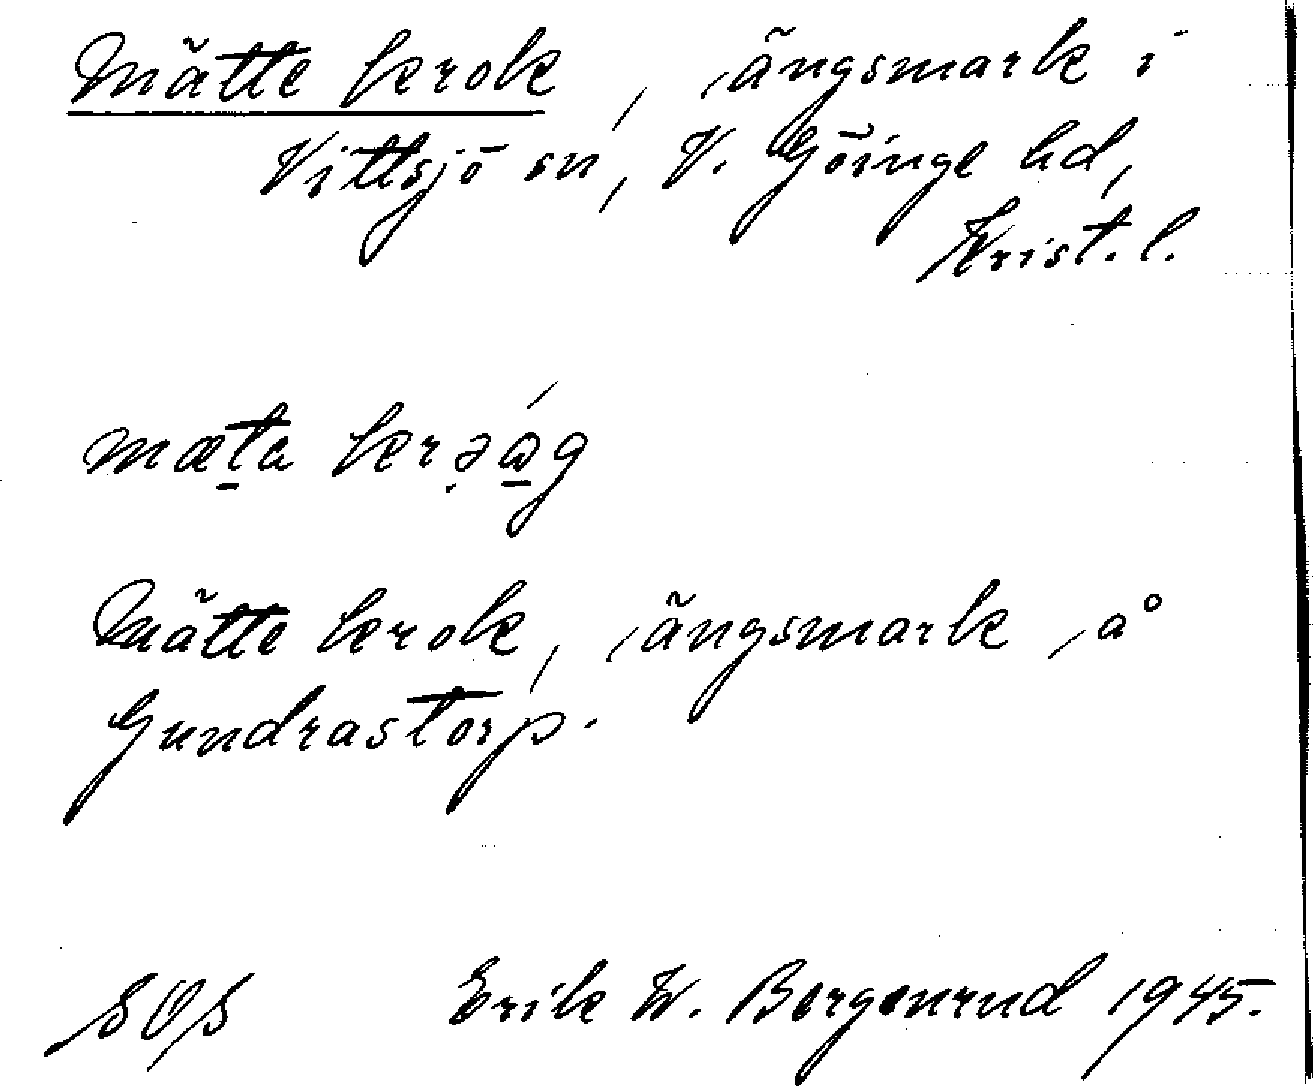 Mätte krok, ängsmark i
Vittsjö sn, V. Göinge hd,
Krist. l.
mæta krəág
Mätte krok, ängsmark å
Gundrastorp.
SOS Erik W. Borgenrud 1945.